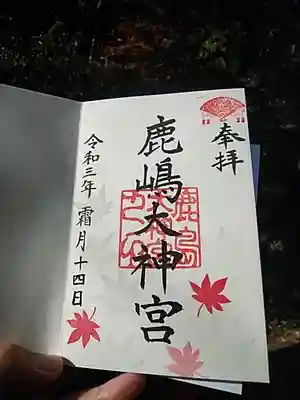 奉拝
鹿嶋大神宮
令和三年 霜月十四日